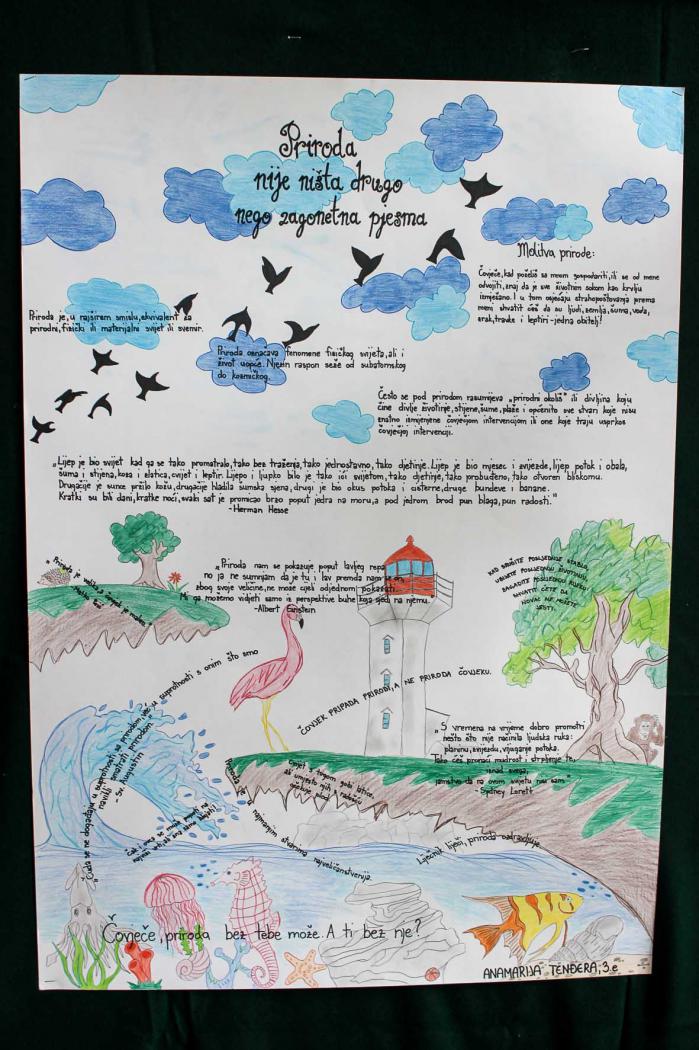 Priroda
nije ništa drugo
nego zagonetna pjesma
Molitva prirode:
Čovječe, kad poželiš sa mnom gospodariti, ili se od mene
odvojiti, znaj da je sve životnim sokom kao krvlju
izmješano. I u tom osjećaju strahopoštovanja prema
meni shvatit ćeš da su ljudi, zemlja, šuma, voda,
zrak, travke i leptiri - jedna obitelj!
Priroda je, u najširem smislu, ekvivalent za
prirodni, fizički ili materijalni svijet ili svemir.
Priroda označava fenomene fizičkog svijeta, ali i
život uopće. Njezin raspon seže od subatomskog
do kozmičkog.
Često se pod prirodom razumijeva „prirodni okoliš" ili divljina koju
čine divlje životinje, stijene, šume, plaže i općenito sve stvari koje nisu
znatno izmijenjene čovjekovom intervencijom ili one koje traju usprkos
čovjekovoj intervenciji.
„Lijep je bio svijet kad ga se tako promatralo, tako bez traženja, tako jednostavno, tako djetinje. Lijep je bio mjesec i zvijezde, lijep potok i obala,
šuma i stijena, koza i zlatica, cvijet i leptir. Lijepo i ljupko bilo je tako ići svijetom, tako djetinje, tako probuđeno, tako otvoren bliskomu.
Drugačije je sunce pržilo kožu, drugačije hladila šumska sjena, drugi je bio okus potoka i cisterne, druge bundeve i banane.
Kratki su bili dani, kratke noći, svaki sat je promicao brzo poput jedra na moru, a pod jedrom brod pun blaga, pun radosti."
-Herman Hesse
„Priroda nam se pokazuje poput lavljeg repa
no ja ne sumnjam da je tu i lav premda nam se on,
zbog svoje veličine, ne može cijeli odjednom pokazati.
Mi ga možemo vidjeti samo iz perspektive buhe koja sjedi na njemu.
-Albert Einstein
KAD SRUŠITE POSLJEDNJE STABLO,
UBIJETE POSLJEDNJU ŽIVOTINJU,
ZAGADITE POSLJEDNJU RIJEKU
SHVATIT ĆETE DA
NOVAC NE MOŽETE
JESTI.
„Čuda se ne događaju u suprotnosti sa prirodom, već u suprotnosti s onim što smo
navikli smatrati prirodom."
- Sv. Augustin
ČOVJEK PRIPADA PRIRODI, A NE PRIRODA ČOVJEKU.
„S vremena na vrijeme dobro promotri
nešto što nije načinila ljudska ruka:
planinu, zvijezdu, vijuganje potoka.
Tako ćeš pronaći mudrost i strpljenje te,
iznad svega,
jamstvo da na ovom svijetu nisi sam."
-Sydney Lovett
Priroda je u najmanjim stvarima najveličanstvenija.
Liječnik liječi, priroda ozdravljuje.
Čovječe, priroda bez tebe može. A ti bez nje?
ANAMARIJA TENĐERA, 3.e